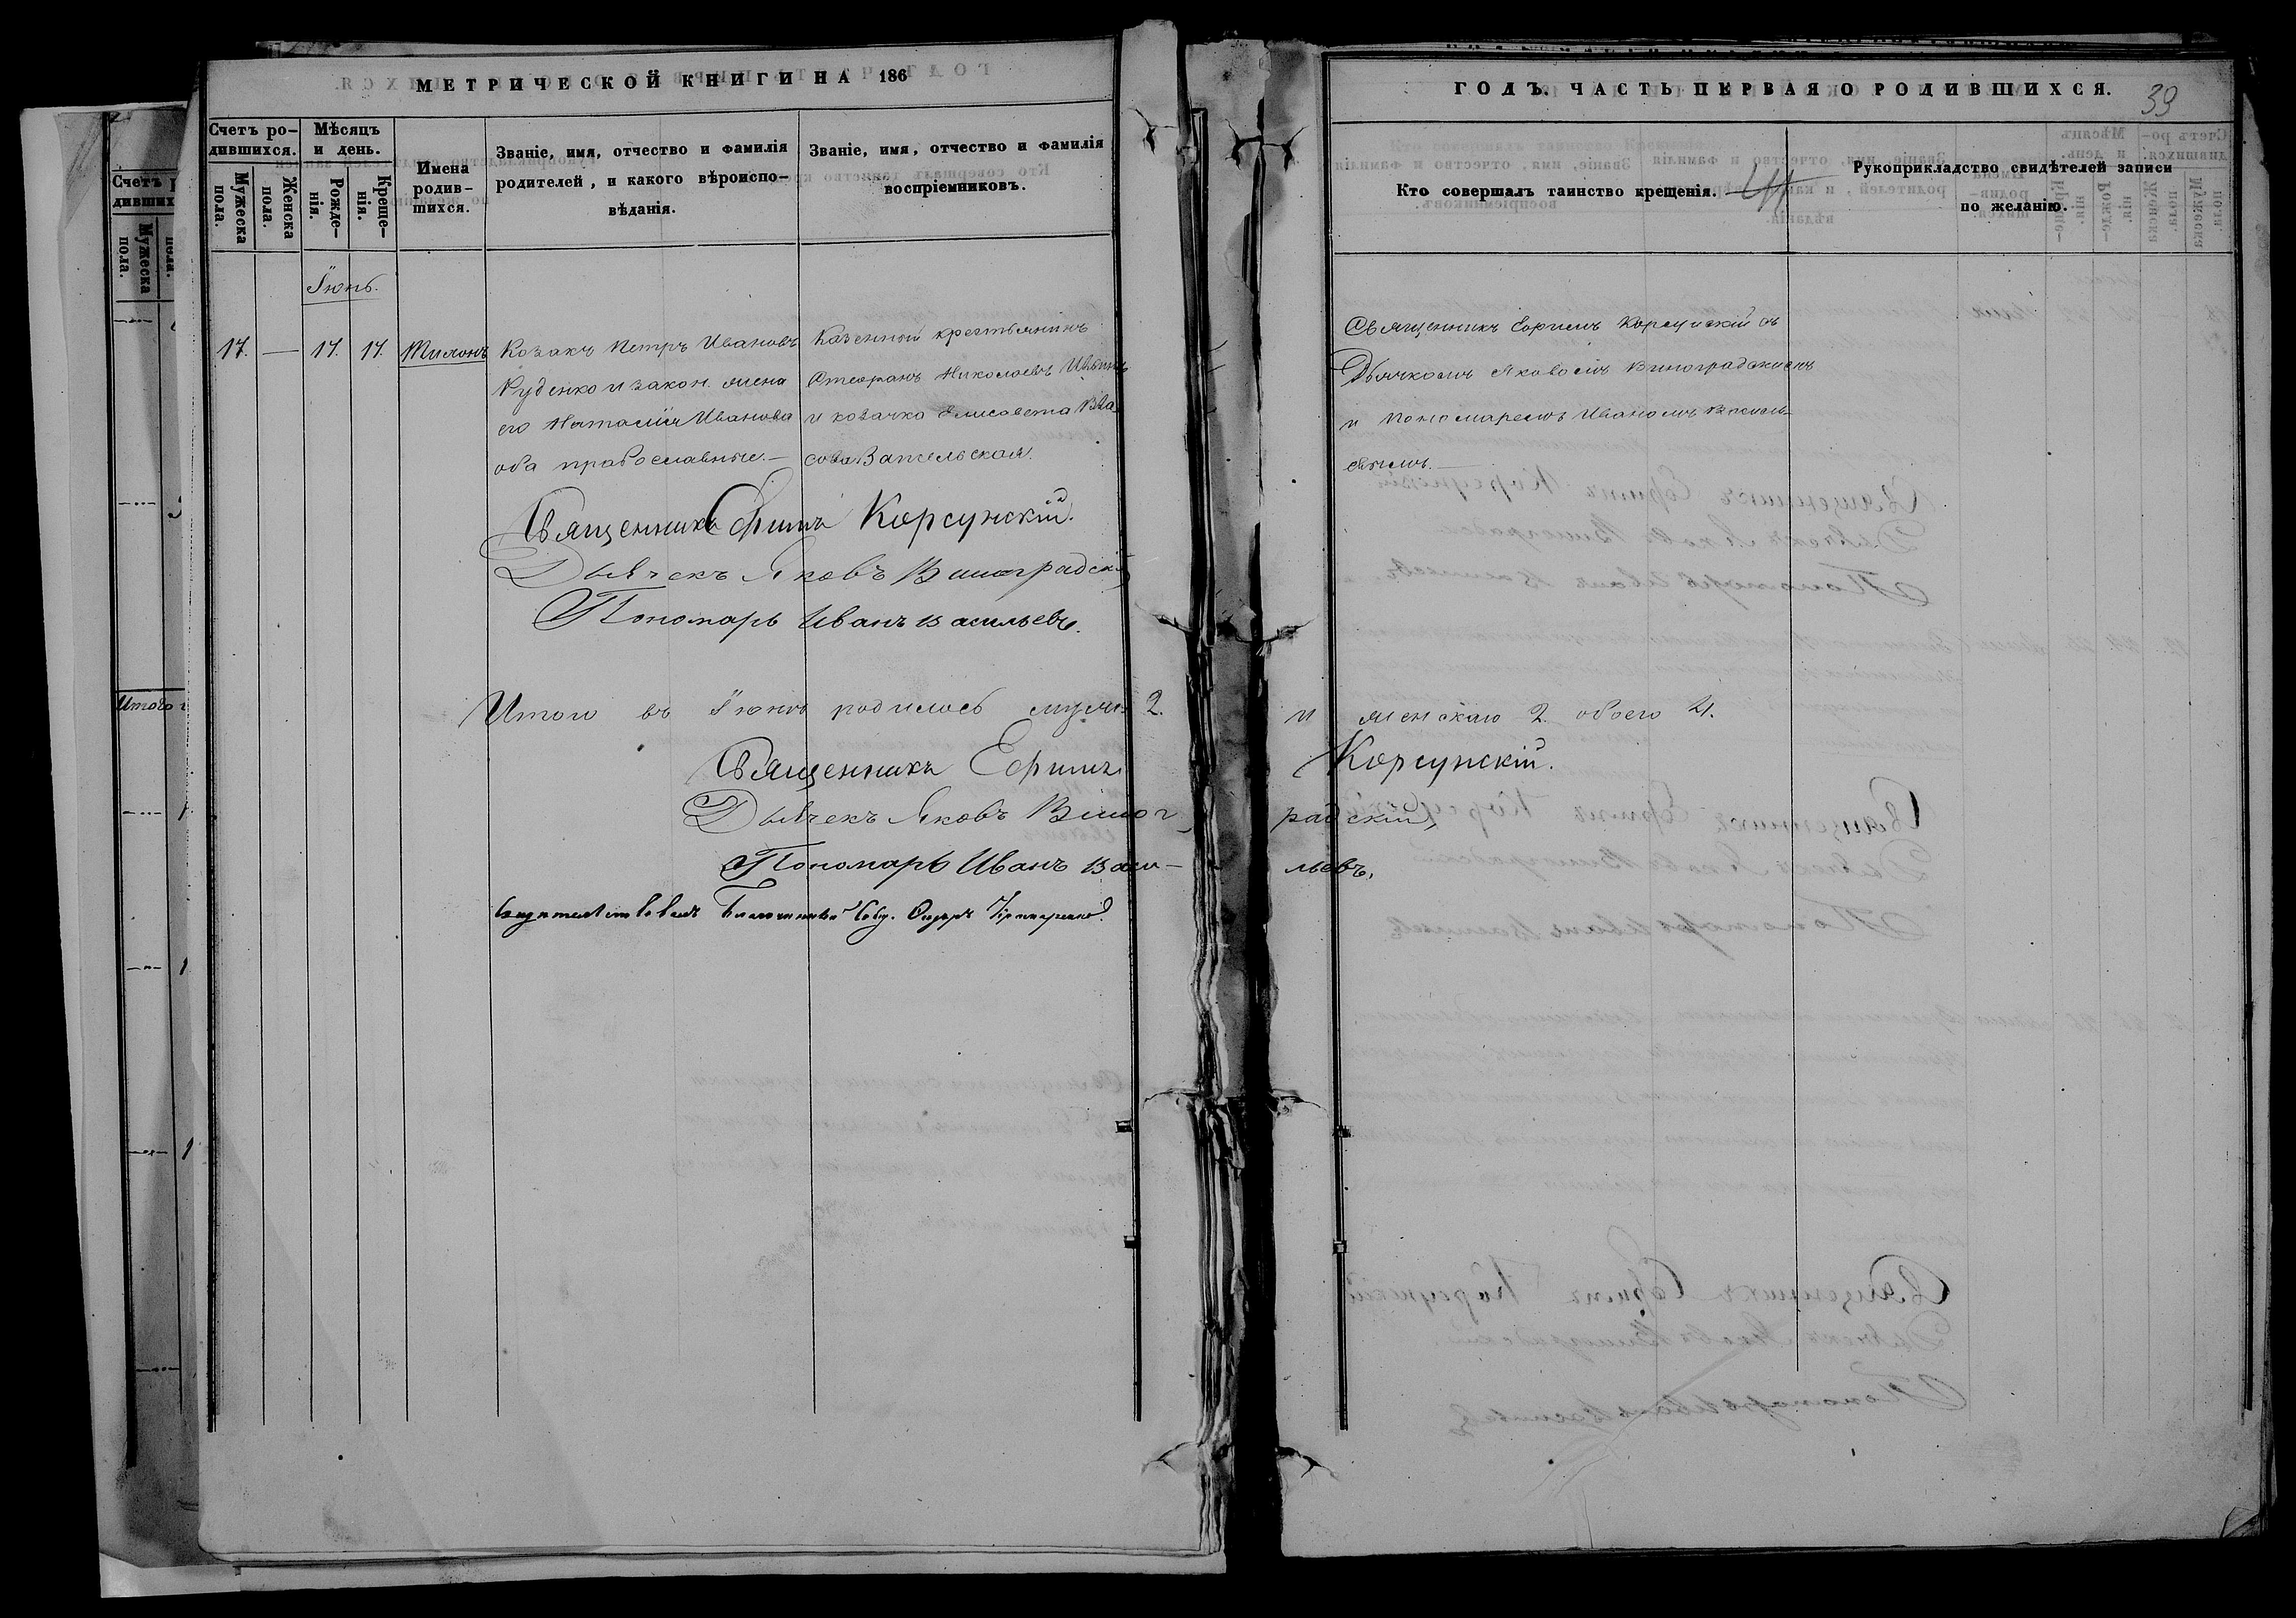 МЕТРИЧЕСКОЙ КНИГИ НА 186
Счетъ ро-
дившихся.
Мужеска
пола.
Женска
пола.
Мѣсяцъ
и день.
Рожде-
нія.
Креще-
нія.
Имена
родив-
шихся.
Званіе, имя, отчество и фамилія
родителей, и какого вѣроиспо-
вѣданія.
Званіе, имя, отчество и фамилія
воспріемниковъ.
Іюнь.
17. — 17. 17. Тимонъ
Козакъ Петръ Ивановъ
Руденко и закон. жена
его Наталія Иванова
оба православные. —
Казенный крестьянинъ
Стефанъ Николаевъ
и козачка Елисавета Вла
сова
Священникъ Ефимъ Корсунскій.
Дьячекъ Яковъ Виноградскій
Пономарь Иванъ Васильевъ.
Итого въ Іюнѣ родилось муж. 2.
Священникъ Ефимъ
Дьячекъ Яковъ Виног
Пономарь Иванъ Васи-
Свидѣтельствовалъ Благочинный
ГОДЪ. ЧАСТЬ ПЕРВАЯ О РОДИВШИХСЯ.
39
Кто совершалъ таинство крещенія.
Рукоприкладство свидѣтелей записи
по желанію.
Священникъ Ефимъ Корсунскій съ
Дьячкомъ Яковомъ Виноградскимъ
и Пономаремъ Иваномъ Василь-
евымъ. —
и женскаго 2. обоего 4.
Корсунскій.
радскій,
льевъ.
Счетъ
дивших
Мужеска
пола.
пола.
Итого